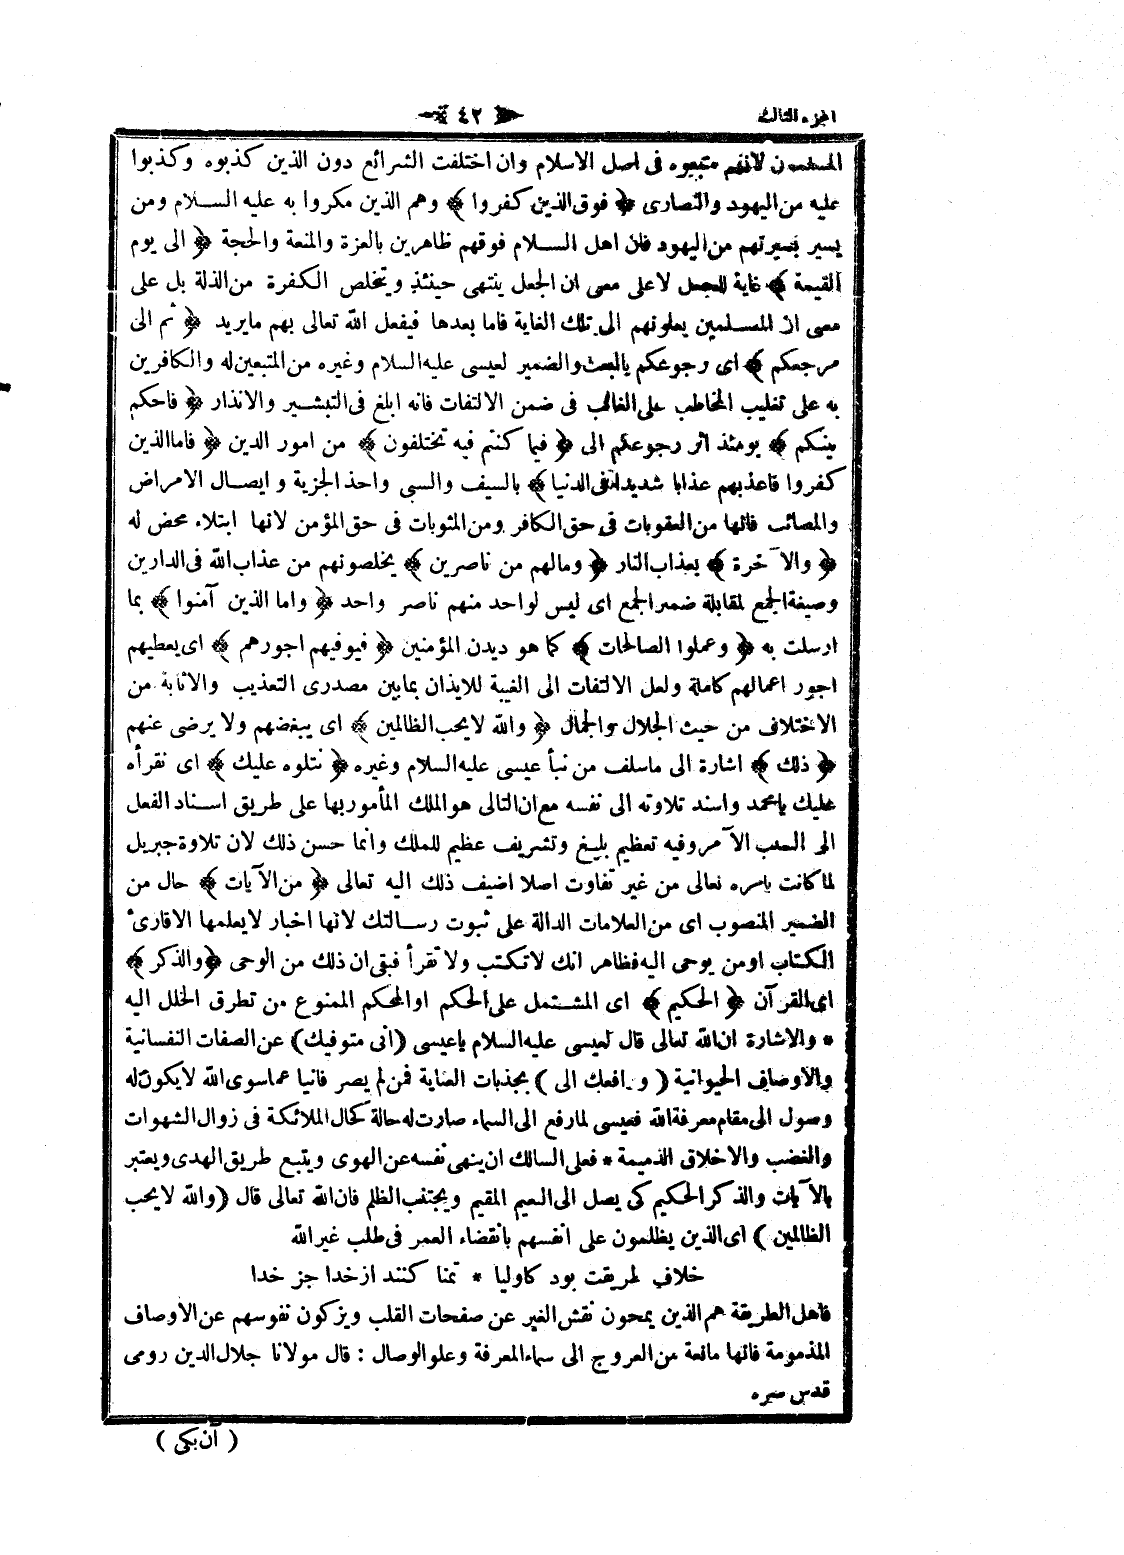 الجزء الثالث
﴿ ٤٢ ﴾
المسلمون لانهم متبعوه فى اصل الاسلام وان اختلفت الشرائع دون الذين كذبوه وكذبوا
عليه من اليهود والنصارى ﴿ فوق الذين كفروا ﴾ وهم الذين مكروا به عليه السلام ومن
يسير بسيرتهم من اليهود فان اهل السلام فوقهم ظاهرين بالعزة والمنعة والحجة ﴿ الى يوم
القيمة ﴾ غاية للجعل لا على معنى ان الجعل ينتهى حينئذ ويتخلص الكفرة من الذلة بل على
معنى ان المسلمين يعلونهم الى تلك الغاية فاما بعدها فيفعل الله تعالى بهم مايريد ﴿ ثم الى
مرجعكم ﴾ اى رجوعكم بالبعث والضمير لعيسى عليه السلام وغيره من المتبعين له والكافرين
به على تغليب المخاطب على الغائب فى ضمن الالتفات فانه ابلغ فى التبشير والانذار ﴿ فاحكم
بينكم ﴾ يومئذ اثر رجوعكم الى ﴿ فيما كنتم فيه تختلفون ﴾ من امور الدين ﴿ فاما الذين
كفروا فاعذبهم عذابا شديدا فى الدنيا ﴾ بالسيف والسبى واخذ الجزية و ايصال الامراض
والمصائب فانها من العقوبات فى حق الكافر ومن المثوبات فى حق المؤمن لانها ابتلاء محض له
﴿ والآخرة ﴾ بعذاب النار ﴿ ومالهم من ناصرين ﴾ يخلصونهم من عذاب الله فى الدارين
وصيغة الجمع لمقابلة ضمير الجمع اى ليس لواحد منهم ناصر واحد ﴿ واما الذين آمنوا ﴾ بما
ارسلت به ﴿ وعملوا الصالحات ﴾ كما هو ديدن المؤمنين ﴿ فيوفيهم اجورهم ﴾ اى يعطيهم
اجور اعمالهم كاملة ولعل الالتفات الى الغيبة للايذان بمابين مصدرى التعذيب والاثابة من
الاختلاف من حيث الجلال والجمال ﴿ والله لايحب الظالمين ﴾ اى يبغضهم ولا يرضى عنهم
﴿ ذلك ﴾ اشارة الى ماسلف من نبأ عيسى عليه السلام وغيره ﴿ نتلوه عليك ﴾ اى نقرأه
عليك يامحمد واسند تلاوته الى نفسه مع ان التالى هو الملك المأمور بها على طريق اسناد الفعل
الى السبب الآمر وفيه تعظيم بليغ وتشريف عظيم للملك وانما حسن ذلك لان تلاوة جبريل
لما كانت بامره تعالى من غير تفاوت اصلا اضيف ذلك اليه تعالى ﴿ من الآيات ﴾ حال من
الضمير المنصوب اى من العلامات الدالة على ثبوت رسالتك لانها اخبار لايعلمها الا قارئ
الكتاب او من يوحى اليه فظاهر انك لاتكتب ولا تقرأ فبقى ان ذلك من الوحى ﴿ والذكر ﴾
اى القرآن ﴿ الحكيم ﴾ اى المشتمل على الحكم او المحكم الممنوع من تطرق الخلل اليه
* والاشارة ان الله تعالى قال لعيسى عليه السلام ياعيسى (انى متوفيك) عن الصفات النفسانية
والاوصاف الحيوانية ( ورافعك الى ) بجذبات العناية فمن لم يصر فانيا عماسوى الله لايكون له
وصول الى مقام معرفة الله فعيسى لما رفع الى السماء صارت له حالة كحال الملائكة فى زوال الشهوات
والغضب والاخلاق الذميمة * فعلى السالك ان ينهى نفسه عن الهوى ويتبع طريق الهدى ويعتبر
بالآيات والذكر الحكيم كى يصل الى النعيم المقيم ويجتنب الظلم فان الله تعالى قال (والله لايحب
الظالمين ) اى الذين يظلمون على انفسهم بانقضاء العمر فى طلب غير الله
خلاف طريقت بود كاوليا * تمنا كنند از خدا جز خدا
فاهل الطريقة هم الذين يمحون نقش الغير عن صفحات القلب ويزكون نفوسهم عن الاوصاف
المذمومة فانها مانعة من العروج الى سماء المعرفة وعلو الوصال : قال مولانا جلال الدين رومى
قدس سره
( آن بكى )